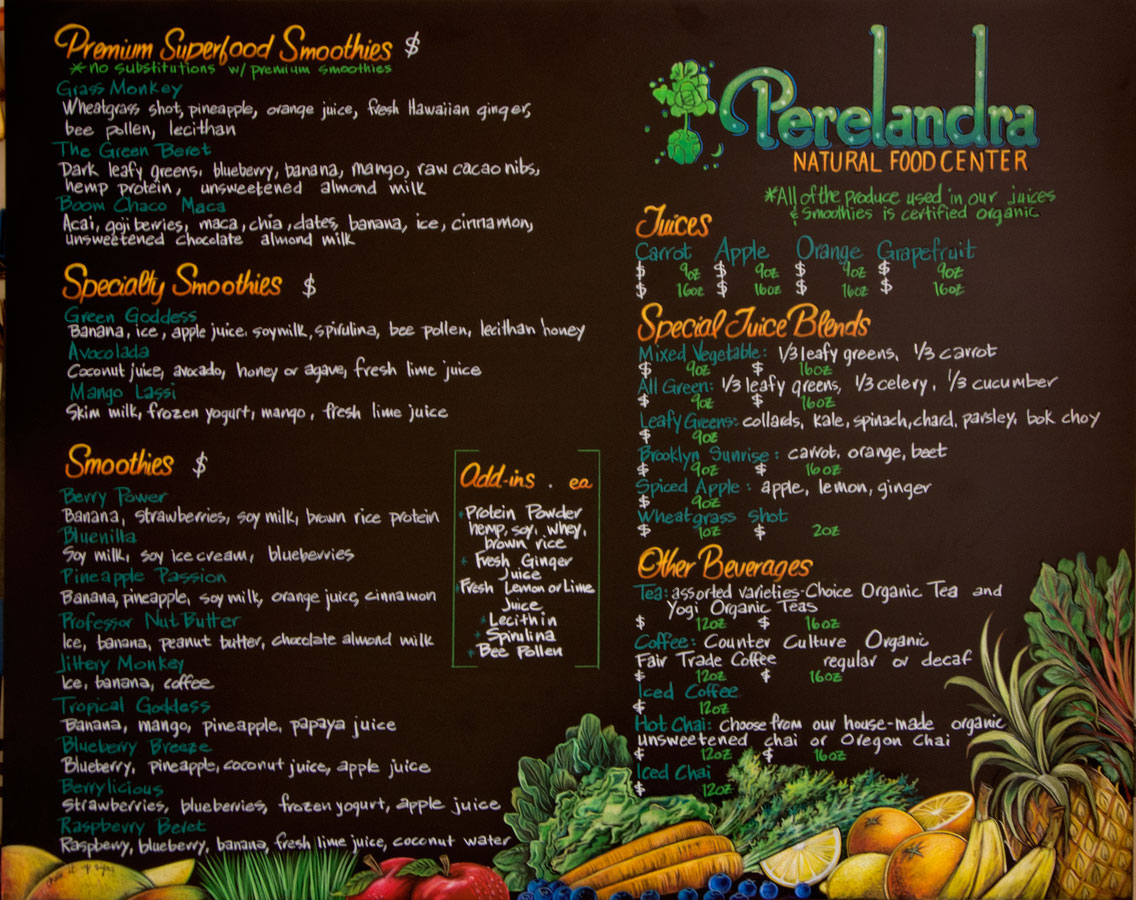 Premium Superfood Smoothies $
*no substitutions w/ premium smoothies
Grass Monkey
Wheatgrass shot, pineapple, orange juice, fresh Hawaiian ginger,
bee pollen, lecithan
The Green Beret
Dark leafy greens, blueberry, banana, mango, raw cacao nibs,
hemp protein, unsweetened almond milk
Boom Chaco Maca
Acai, goji berries, maca, chia, dates, banana, ice, cinnamon,
unsweetened chocolate almond milk
Specialty Smoothies $
Green Goddess
Banana, ice, apple juice, soymilk, spirulina, bee pollen, lecithan honey
Avocolada
Coconut juice, avocado, honey or agave, fresh lime juice
Mango Lassi
Skim milk, frozen yogurt, mango, fresh lime juice
Smoothies $
Berry Power
Banana, strawberries, soy milk, brown rice protein
Bluenilla
Soy milk, soy ice cream, blueberries
Pineapple Passion
Banana, pineapple, soy milk, orange juice, cinnamon
Professor Nut Butter
Ice, banana, peanut butter, chocolate almond milk
Jittery Monkey
Ice, banana, coffee
Tropical Goddess
Banana, mango, pineapple, papaya juice
Blueberry Breeze
Blueberry, pineapple, coconut juice, apple juice
Berrylicious
Strawberries, blueberries, frozen yogurt, apple juice
Raspberry Beret
Raspberry, blueberry, banana, fresh lime juice, coconut water
Add-ins . ea
*Protein Powder
hemp, soy, whey,
brown rice
*Fresh Ginger
Juice
*Fresh Lemon or Lime
Juice
*Lecithin
*Spirulina
*Bee Pollen
Perelandra
NATURAL FOOD CENTER
*All of the produce used in our juices
& smoothies is certified organic
Juices
Carrot Apple Orange Grapefruit
$ 9oz $ 9oz $ 9oz $ 9oz
$ 16oz $ 16oz $ 16oz $ 16oz
Special Juice Blends
Mixed Vegetable: 1/3 leafy greens, 1/3 carrot
$ 9oz $ 16oz
All Green: 1/3 leafy greens, 1/3 celery, 1/3 cucumber
$ 9oz $ 16oz
Leafy Greens: collards, kale, spinach, chard, parsley, bok choy
$ 9oz
Brooklyn Sunrise: carrot, orange, beet
$ 9oz $ 16oz
Spiced Apple: apple, lemon, ginger
$ 9oz
Wheatgrass Shot
$ 1oz $ 2oz
Other Beverages
Tea: assorted varieties-Choice Organic Tea and
Yogi Organic Teas
$ 12oz $ 16oz
Coffee: Counter Culture Organic
Fair Trade Coffee regular or decaf
$ 12oz $ 16oz
Iced Coffee
$ 12oz
Hot Chai: choose from our house-made organic
unsweetened chai or Oregon Chai
$ 12oz $ 16oz
Iced Chai
$ 12oz